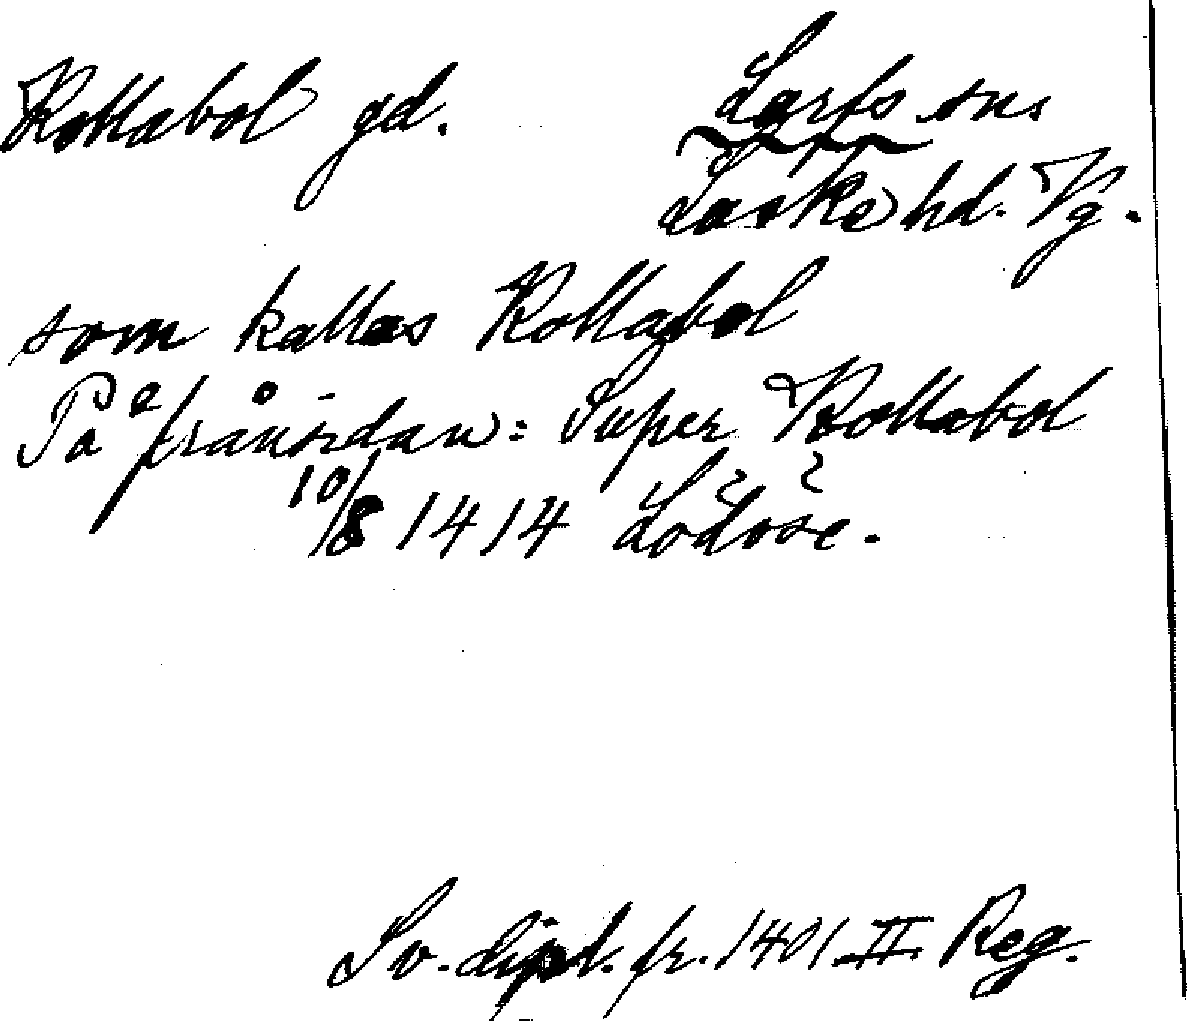 Kollabol gd.
Larfs sn.
Laske hd. Vg.
som kallas Kollabol
På frånsidan: Super Kollabol
10/8 1414 Lödöse.
Sv. dipl. fr. 1401 II Reg.